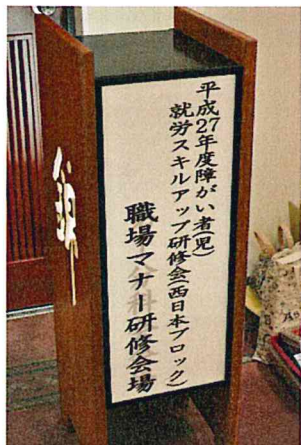 平成27年度障がい者(児)
就労スキルアップ研修会(西日本ブロック)
職場マナー研修会場